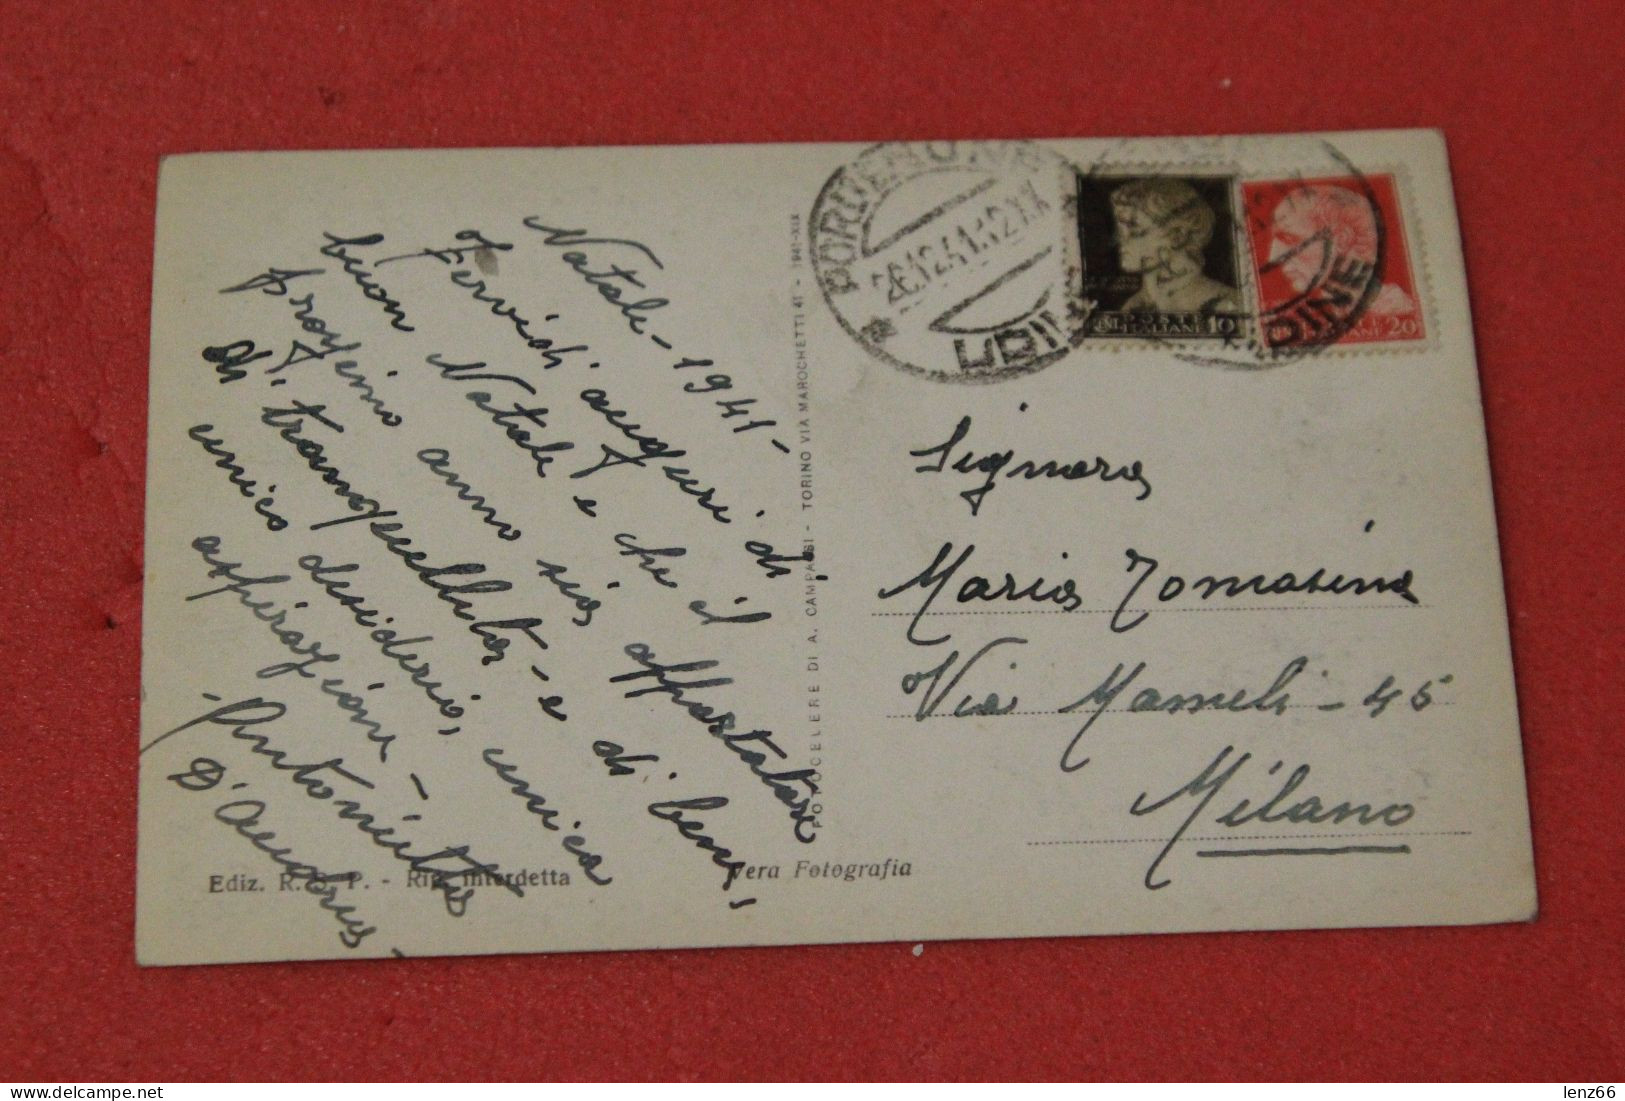 Natale - 1941 -
Fervidi auguri di
buon Natale e che il
prossimo anno sia apportatore
di tranquillità - e di bene,
unico desiderio, unica
aspirazione -
Antonietta
D'Andrea -
Ediz. R. - Rip. interdetta
Vera Fotografia
FOTOCELERE DI A. CAMPASSI - TORINO VIA MAROCHETTI 41 - 1941-XIX
PORDENONE
28.12.41.12 XX
UDINE
POSTE ITALIANE 10
20
UDINE
Signora
Maria Tomasina
Via Mameli - 45
Milano
lenz66